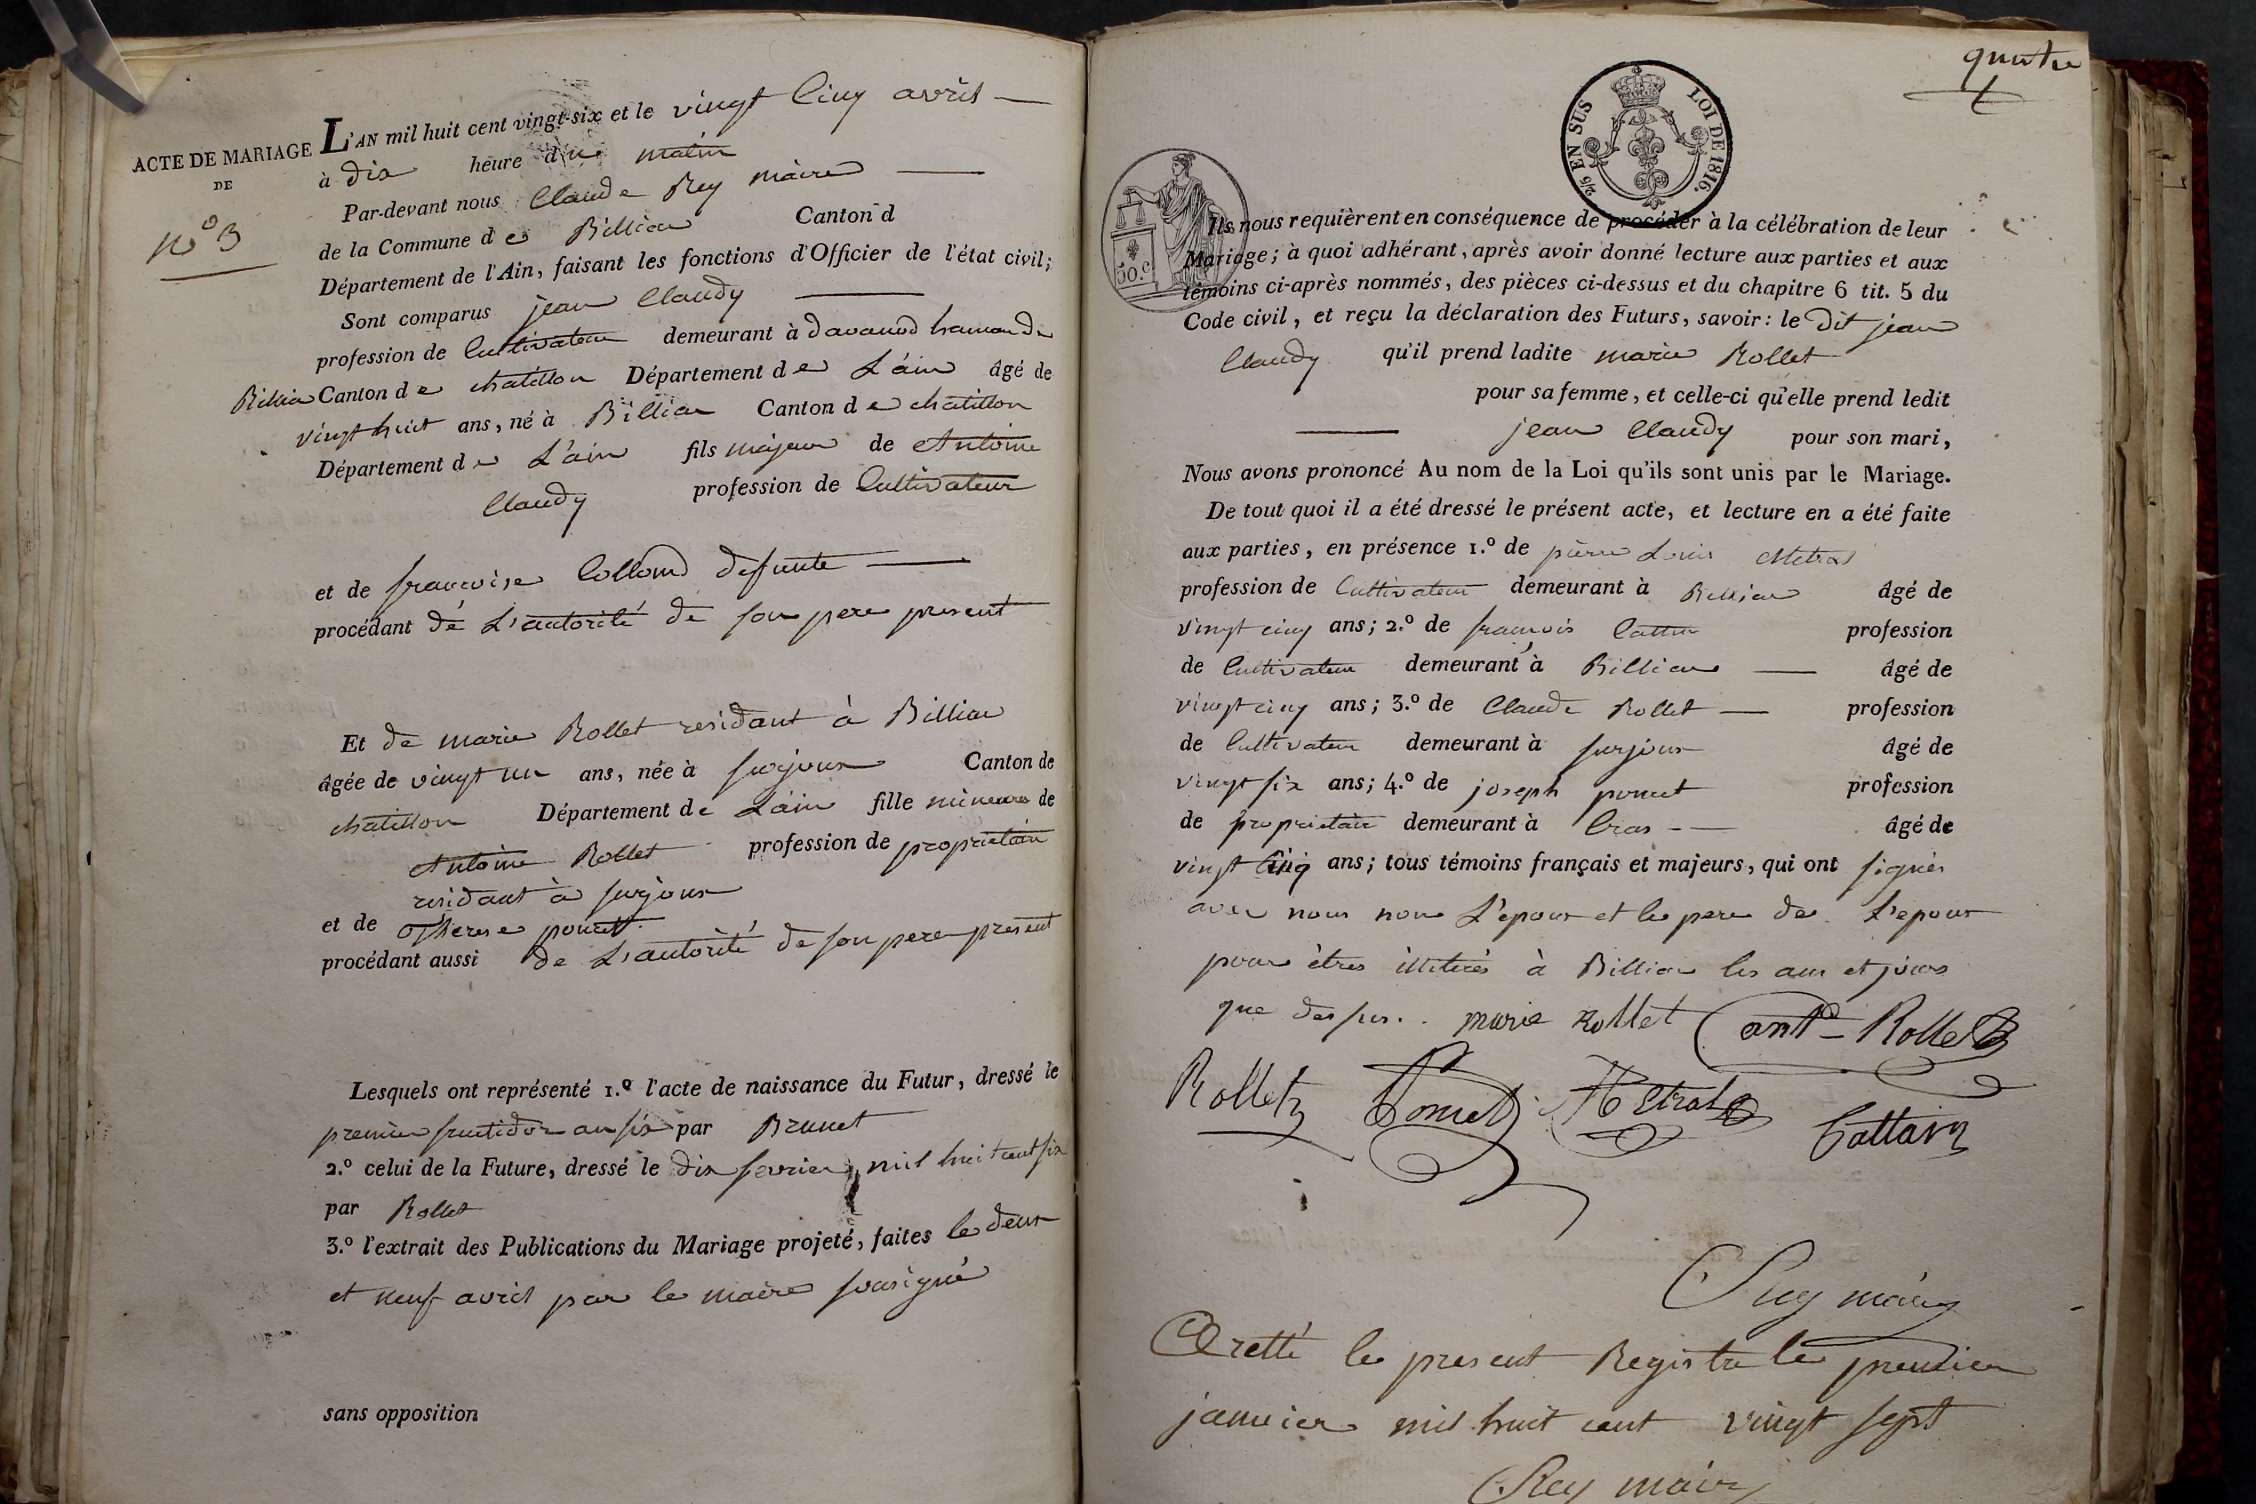 ACTE DE MARIAGE
DE
n° 3
L'AN mil huit cent vingt-six et le vingt Cinq avril
à dix heure du matin
Par-devant nous Claude Rey maire
de la Commune de Billiat Canton d
Département de l'Ain, faisant les fonctions d'Officier de l'état civil;
Sont comparus jean Claudy
profession de Cultivateur demeurant à davanod hameau de
Billia Canton de chatillon Département de L'ain âgé de
vingt huit ans, né à Billia Canton de chatillon
Département de L'ain fils majeur de Antoine
Claudy profession de Cultivateur
et de francoise Collond defunte
procédant de L'autorité de son pere present
Et de marie Rollet residant à Billia
âgée de vingt un ans, née à surjoux Canton de
chatillon Département de L'ain fille mineure de
Antoine Rollet profession de proprietaire
residant à surjoux
et de Therese poncet
procédant aussi de L'autorité de son pere present
Lesquels ont représenté 1.º l'acte de naissance du Futur, dressé le
premier fructidor an six par Brunet
2.º celui de la Future, dressé le dix fevrier mil huit cent six
par Rollet
3.º l'extrait des Publications du Mariage projeté, faites le deux
et neuf avril par le maire sousigné
sans opposition
quatre
2/5 EN SUS LOI DE 1816.
50.c
Ils nous requièrent en conséquence de procéder à la célébration de leur
Mariage; à quoi adhérant, après avoir donné lecture aux parties et aux
témoins ci-après nommés, des pièces ci-dessus et du chapitre 6 tit. 5 du
Code civil, et reçu la déclaration des Futurs, savoir: le dit jean
Claudy qu'il prend ladite marie Rollet
pour sa femme, et celle-ci qu'elle prend ledit
jean Claudy pour son mari,
Nous avons prononcé Au nom de la Loi qu'ils sont unis par le Mariage.
De tout quoi il a été dressé le présent acte, et lecture en a été faite
aux parties, en présence 1.º de pierre Louis Metral
profession de Cultivateur demeurant à Billia âgé de
vingt cinq ans; 2.º de francois Cattin profession
de Cultivateur demeurant à Billia âgé de
vingt cinq ans; 3.º de Claude Rollet profession
de Cultivateur demeurant à surjoux âgé de
vingt six ans; 4.º de joseph poncet profession
de proprietaire demeurant à Cras âgé de
vingt Cinq ans; tous témoins français et majeurs, qui ont signés
avec nous non L'epoux et le pere de L'epoux
pour êtres illiterés à Billia les an et jours
que dessus. marie Rollet ant.e Rollet
Rollet Poncet Metral Cattin
Rey maire
Aretté le present Registre le premier
janvier mil huit cent vingt sept
Rey maire